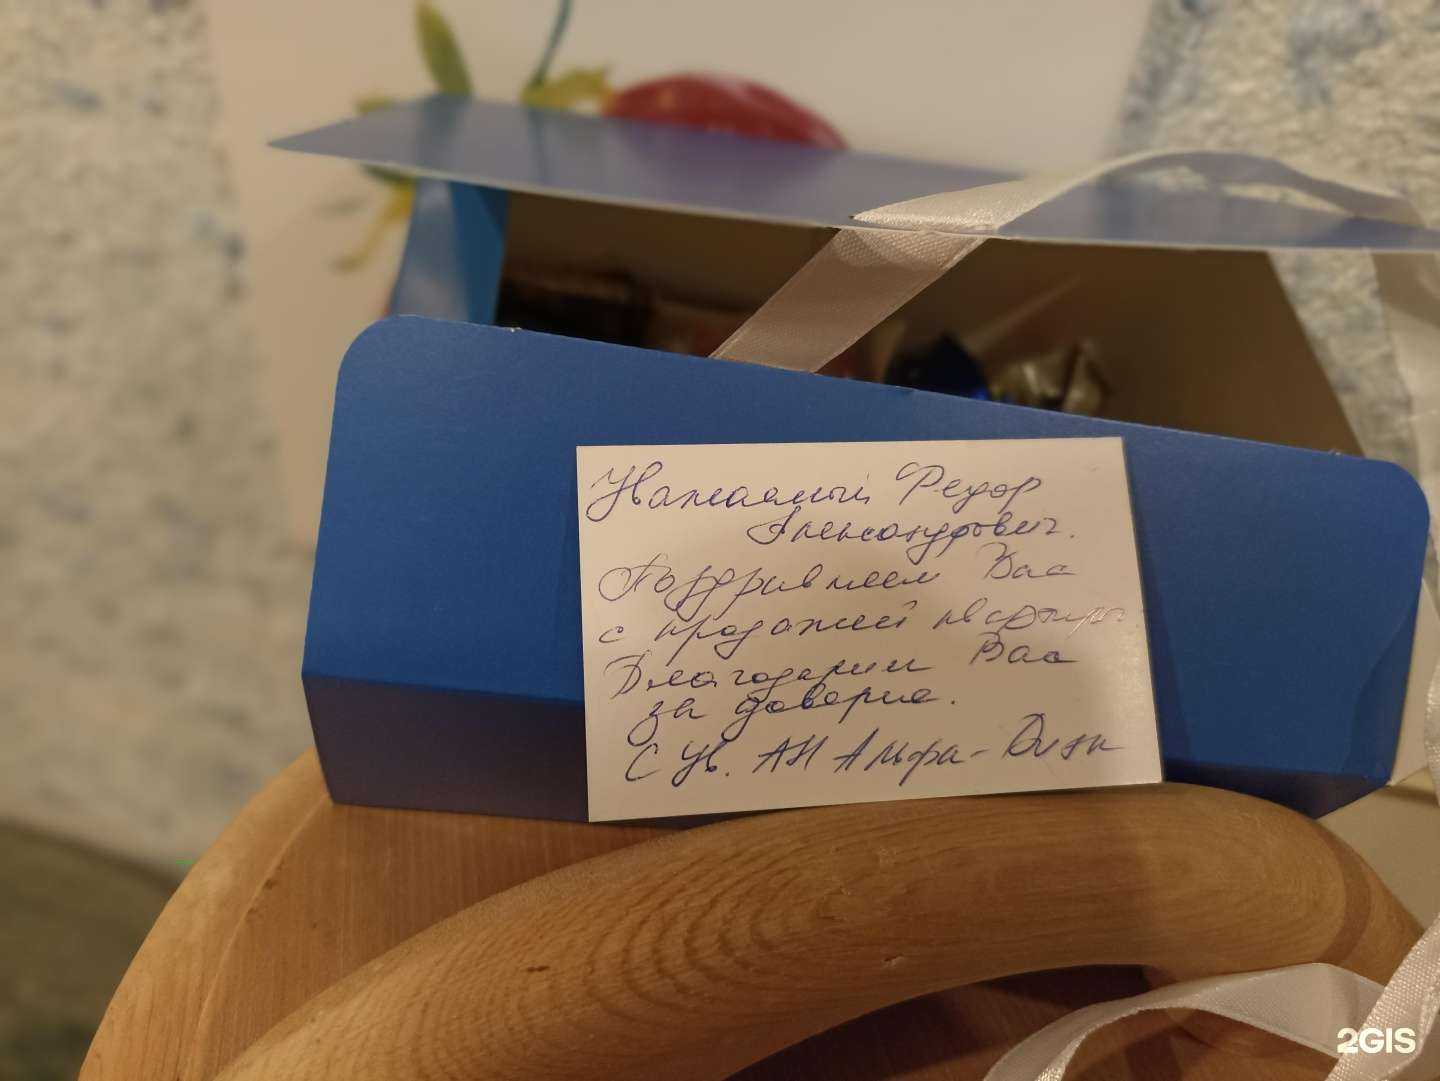 Уважаемый Федор
Александрович.
Поздравляем Вас
с продажей квартиры.
Благодарим Вас
за доверие.
С Ув. АН Альфа-Дизи
2GIS